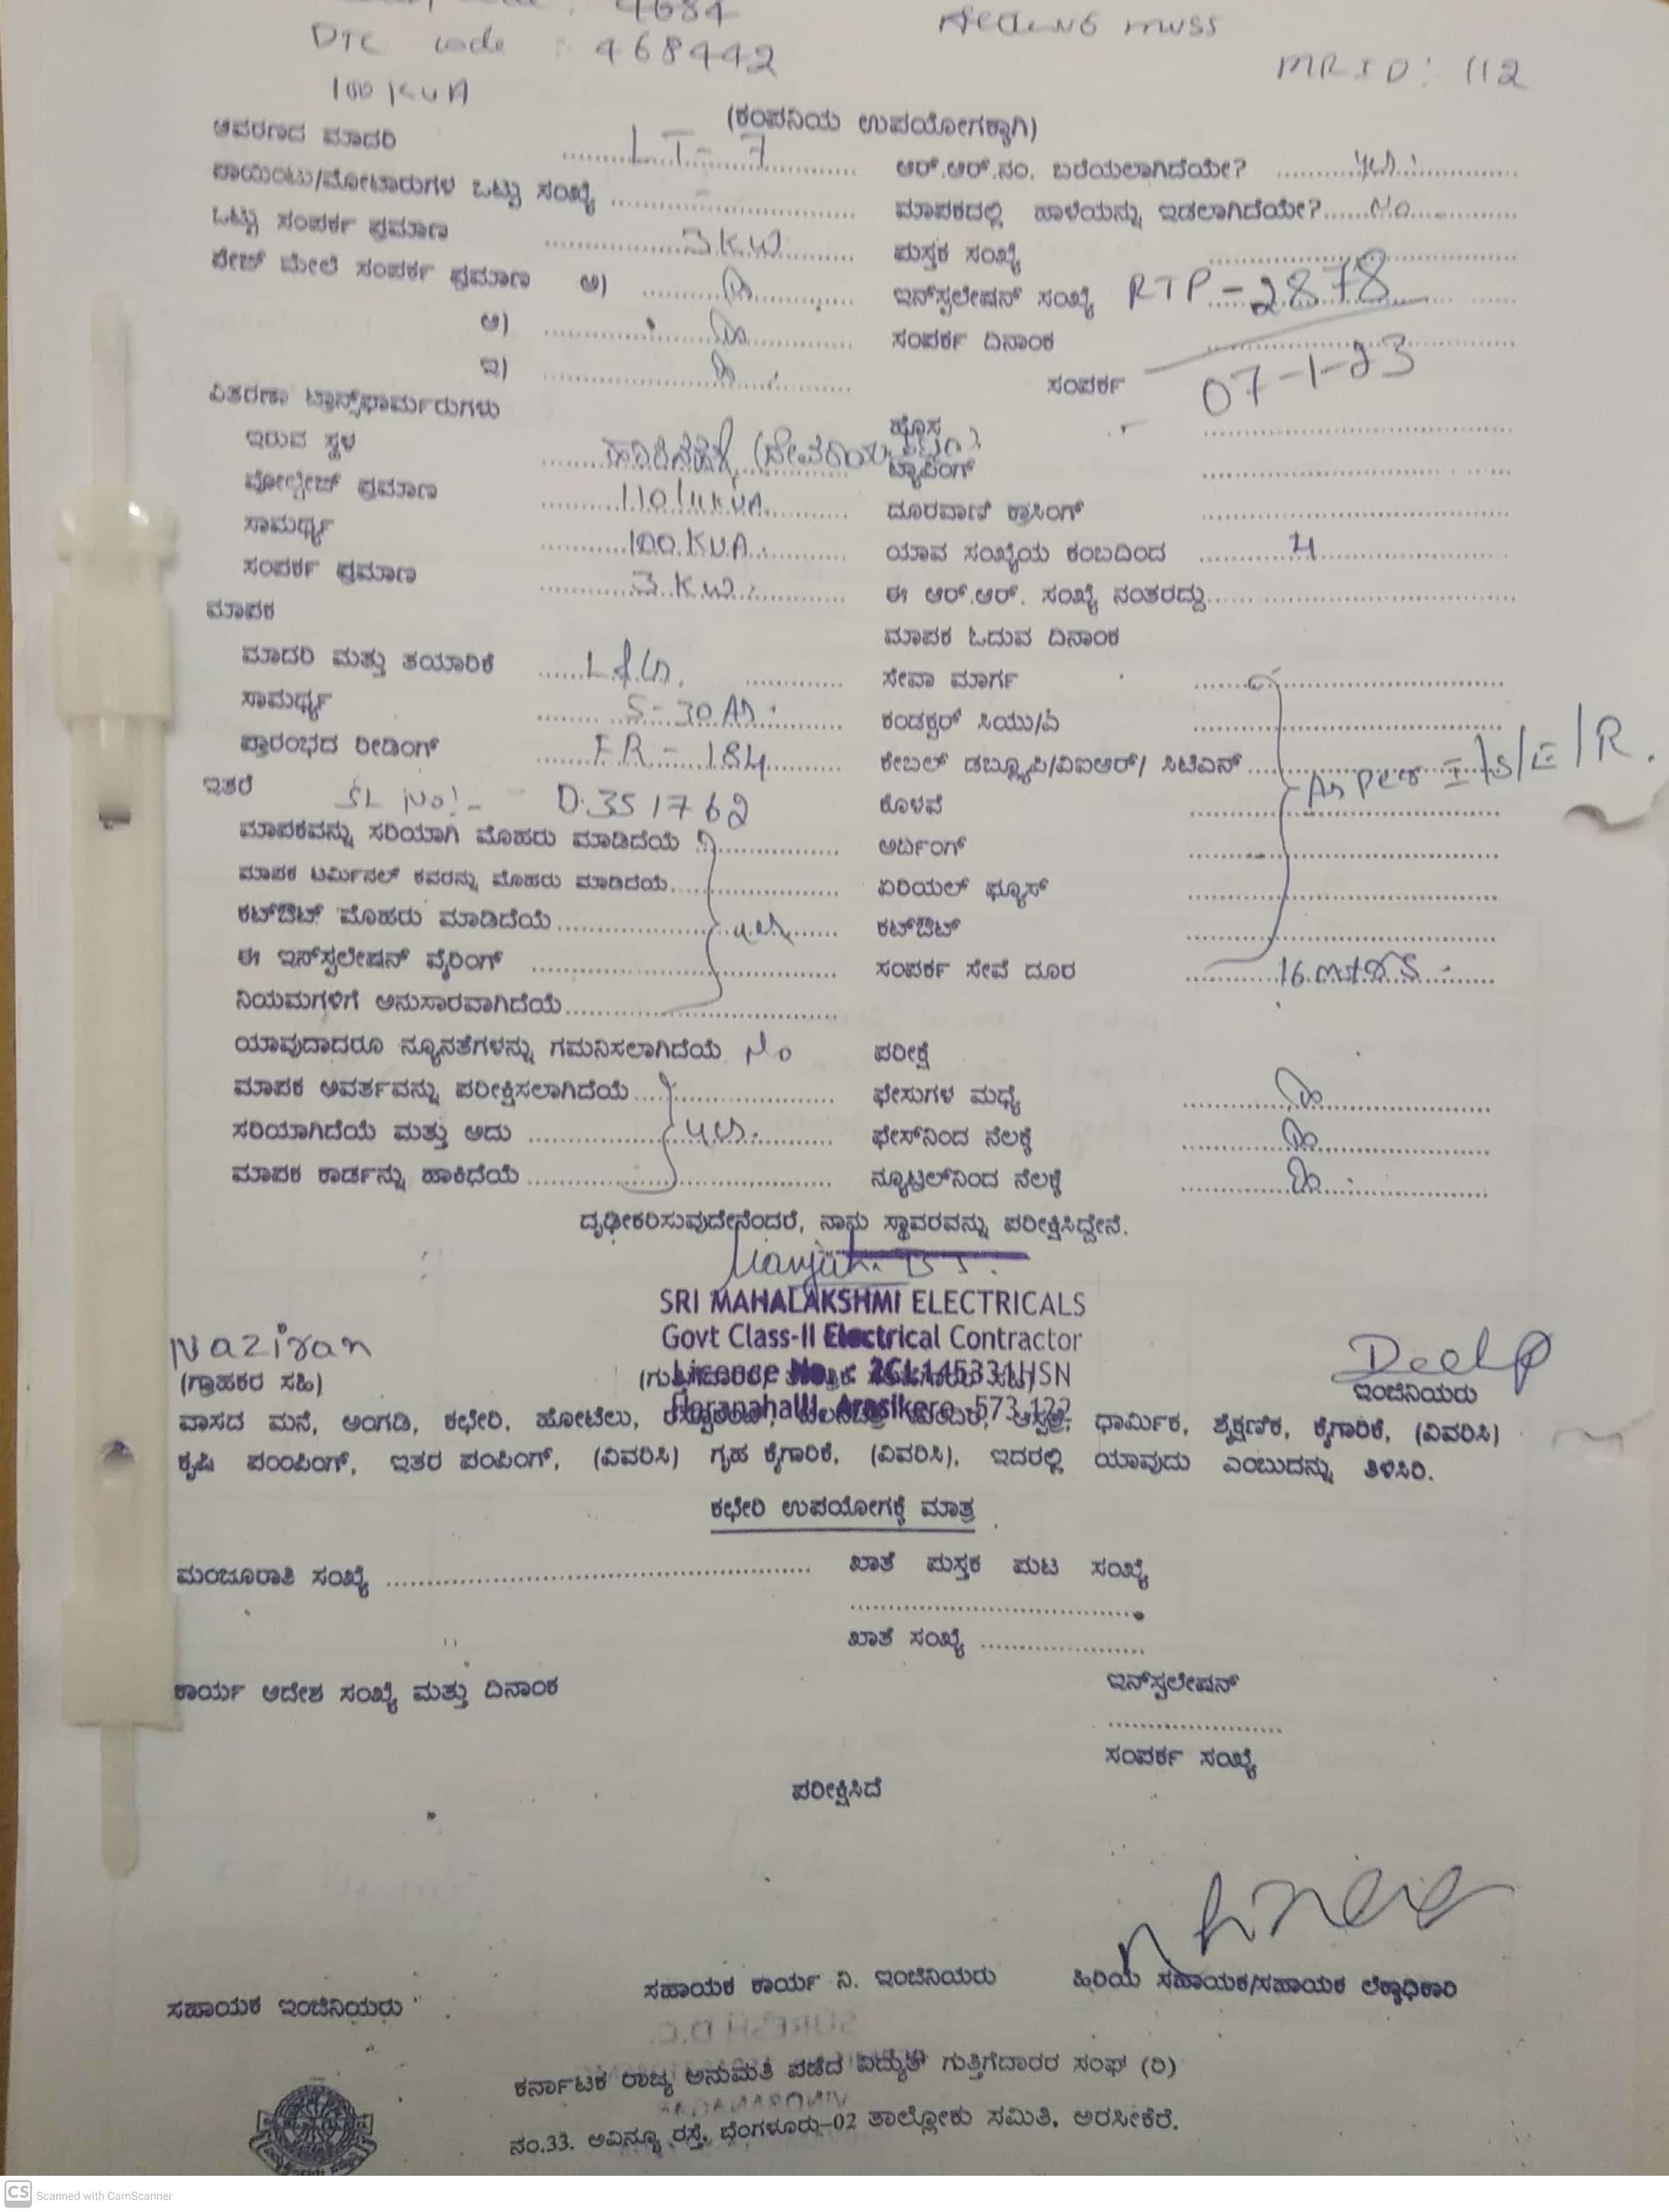 4684
DTC code : 468442
MUSS
MR ID: 112
100 KVA
(ಕಂಪನಿಯ ಉಪಯೋಗಕ್ಕಾಗಿ)
ಆವರಣದ ಮಾದರಿ LT-7 ಆರ್.ಆರ್.ನಂ. ಬರೆಯಲಾಗಿದೆಯೇ? yes
ಪಾಯಿಂಟು/ಮೋಟಾರುಗಳ ಒಟ್ಟು ಸಂಖ್ಯೆ - ಮಾಪಕದಲ್ಲಿ ಹಾಳೆಯನ್ನು ಇಡಲಾಗಿದೆಯೇ? No
ಒಟ್ಟು ಸಂಪರ್ಕ ಪ್ರಮಾಣ 3KW ಪುಸ್ತಕ ಸಂಖ್ಯೆ
ಪೇಜ್ ಮೇಲೆ ಸಂಪರ್ಕ ಪ್ರಮಾಣ ಅ) ಇನ್‌ಸ್ಟಲೇಷನ್ ಸಂಖ್ಯೆ RTP-2878
ಆ) ಸಂಪರ್ಕ ದಿನಾಂಕ 07-1-23
ಇ) ಸಂಪರ್ಕ
ವಿತರಣಾ ಟ್ರಾನ್ಸ್‌ಫಾರ್ಮರುಗಳು
ಇರುವ ಸ್ಥಳ ಹೊಸ
ವೋಲ್ಟೇಜ್ ಪ್ರಮಾಣ 110/11KVA ಟ್ಯಾಪಿಂಗ್
ಸಾಮರ್ಥ್ಯ 100 KVA ದೂರವಾಣಿ ಕ್ರಾಸಿಂಗ್
ಸಂಪರ್ಕ ಪ್ರಮಾಣ 3 KW ಯಾವ ಸಂಖ್ಯೆಯ ಕಂಬದಿಂದ 4
ಮಾಪಕ ಈ ಆರ್.ಆರ್. ಸಂಖ್ಯೆ ನಂತರದ್ದು
ಮಾಪಕ ಓದುವ ದಿನಾಂಕ
ಮಾದರಿ ಮತ್ತು ತಯಾರಿಕೆ L&G ಸೇವಾ ಮಾರ್ಗ
ಸಾಮರ್ಥ್ಯ 5-30 As ಕಂಡಕ್ಟರ್ ಸಿಯು/ಎ
ಪ್ರಾರಂಭದ ರೀಡಿಂಗ್ FR - 184 ಕೇಬಲ್ ಡಬ್ಲ್ಯೂಪಿ/ವಿಐಆರ್/ ಸಿಟಿಎಸ್ As per I/S/E/R.
ಇತರೆ SL No:- D.351762 ಕೊಳವೆ
ಮಾಪಕವನ್ನು ಸರಿಯಾಗಿ ಮೊಹರು ಮಾಡಿದೆಯೆ ಅರ್ಥಿಂಗ್
ಮಾಪಕ ಟರ್ಮಿನಲ್ ಕವರನ್ನು ಮೊಹರು ಮಾಡಿದೆಯೆ ಏರಿಯಲ್ ಫ್ಯೂಸ್
ಕಟ್‌ಔಟ್ ಮೊಹರು ಮಾಡಿದೆಯೆ yes ಕಟ್‌ಔಟ್
ಈ ಇನ್‌ಸ್ಟಲೇಷನ್ ವೈರಿಂಗ್ ಸಂಪರ್ಕ ಸೇವೆ ದೂರ 16 mtrs
ನಿಯಮಗಳಿಗೆ ಅನುಸಾರವಾಗಿದೆಯೆ
ಯಾವುದಾದರೂ ನ್ಯೂನತೆಗಳನ್ನು ಗಮನಿಸಲಾಗಿದೆಯೆ No ಪರೀಕ್ಷೆ
ಮಾಪಕ ಆವರ್ತವನ್ನು ಪರೀಕ್ಷಿಸಲಾಗಿದೆಯೆ ಫೇಸುಗಳ ಮಧ್ಯೆ
ಸರಿಯಾಗಿದೆಯೆ ಮತ್ತು ಅದು yes ಫೇಸ್‌ನಿಂದ ನೆಲಕ್ಕೆ
ಮಾಪಕ ಕಾರ್ಡನ್ನು ಹಾಕಿದೆಯೆ ನ್ಯೂಟ್ರಲ್‌ನಿಂದ ನೆಲಕ್ಕೆ
ದೃಢೀಕರಿಸುವುದೇನೆಂದರೆ, ನಾನು ಸ್ಥಾವರವನ್ನು ಪರೀಕ್ಷಿಸಿದ್ದೇನೆ.
SRI MAHALAKSHMI ELECTRICALS
Govt Class-II Electrical Contractor
Licence No. : 2CL145331HSN
Haranahalli, Arasikere -573 122
Naziran
(ಗ್ರಾಹಕರ ಸಹಿ) ಇಂಜಿನಿಯರು
ವಾಸದ ಮನೆ, ಅಂಗಡಿ, ಕಛೇರಿ, ಹೋಟೆಲು, ಆಸ್ಪತ್ರೆ, ಧಾರ್ಮಿಕ, ಶೈಕ್ಷಣಿಕ, ಕೈಗಾರಿಕೆ, (ವಿವರಿಸಿ)
ಕೃಷಿ ಪಂಪಿಂಗ್, ಇತರ ಪಂಪಿಂಗ್, (ವಿವರಿಸಿ) ಗೃಹ ಕೈಗಾರಿಕೆ, (ವಿವರಿಸಿ), ಇದರಲ್ಲಿ ಯಾವುದು ಎಂಬುದನ್ನು ತಿಳಿಸಿರಿ.
ಕಛೇರಿ ಉಪಯೋಗಕ್ಕೆ ಮಾತ್ರ
ಮಂಜೂರಾತಿ ಸಂಖ್ಯೆ ಖಾತೆ ಪುಸ್ತಕ ಪುಟ ಸಂಖ್ಯೆ
ಖಾತೆ ಸಂಖ್ಯೆ
ಕಾರ್ಯ ಆದೇಶ ಸಂಖ್ಯೆ ಮತ್ತು ದಿನಾಂಕ ಇನ್‌ಸ್ಟಲೇಷನ್
ಸಂಪರ್ಕ ಸಂಖ್ಯೆ
ಪರೀಕ್ಷಿಸಿದೆ
ಸಹಾಯಕ ಇಂಜಿನಿಯರು ಸಹಾಯಕ ಕಾರ್ಯ ನಿ. ಇಂಜಿನಿಯರು ಹಿರಿಯ ಸಹಾಯಕ/ಸಹಾಯಕ ಲೆಕ್ಕಾಧಿಕಾರಿ
ಕರ್ನಾಟಕ ರಾಜ್ಯ ಅನುಮತಿ ಪಡೆದ ವಿದ್ಯುತ್ ಗುತ್ತಿಗೆದಾರರ ಸಂಘ (ರಿ)
ನಂ.33. ಅವಿನ್ಯೂ ರಸ್ತೆ, ಬೆಂಗಳೂರು-02 ತಾಲ್ಲೋಕು ಸಮಿತಿ, ಅರಸೀಕೆರೆ.
CS Scanned with CamScanner